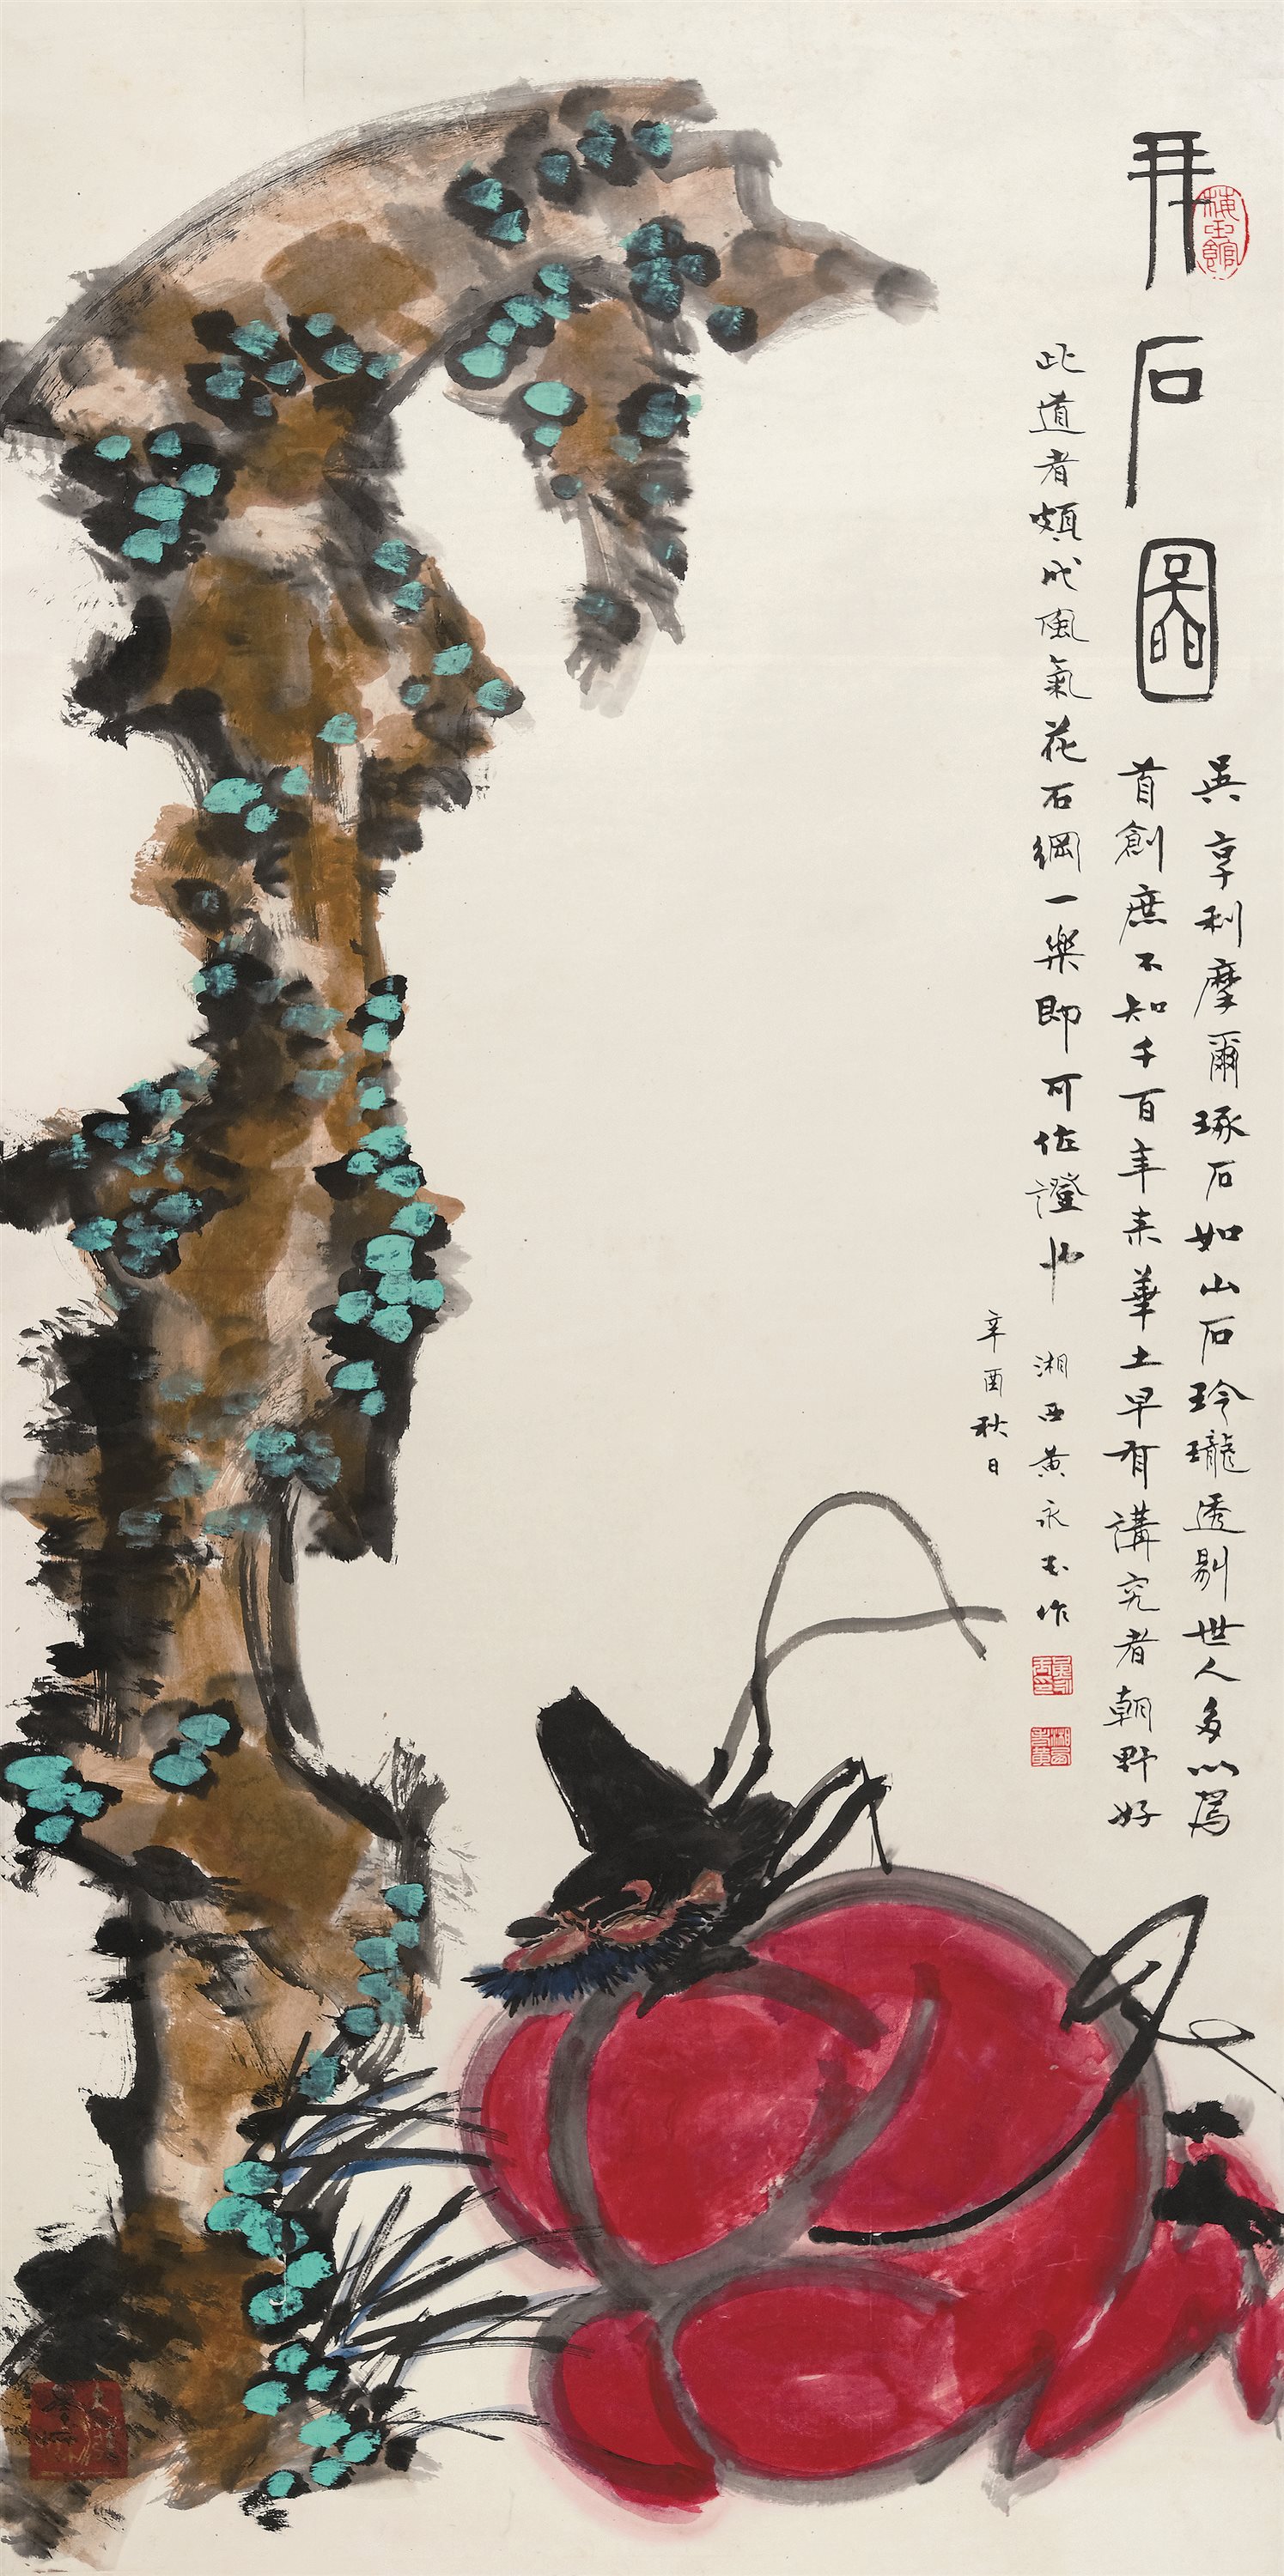 拜石圖
英亨利摩爾琢石如山石玲瓏透剔世人多以為
首創庶不知千百年来華土早有講究者朝野好
此道者頗成風氣花石綱一案即可佐證也 湘西黄永玉作
辛酉秋日
黄永玉印
湘西老黄